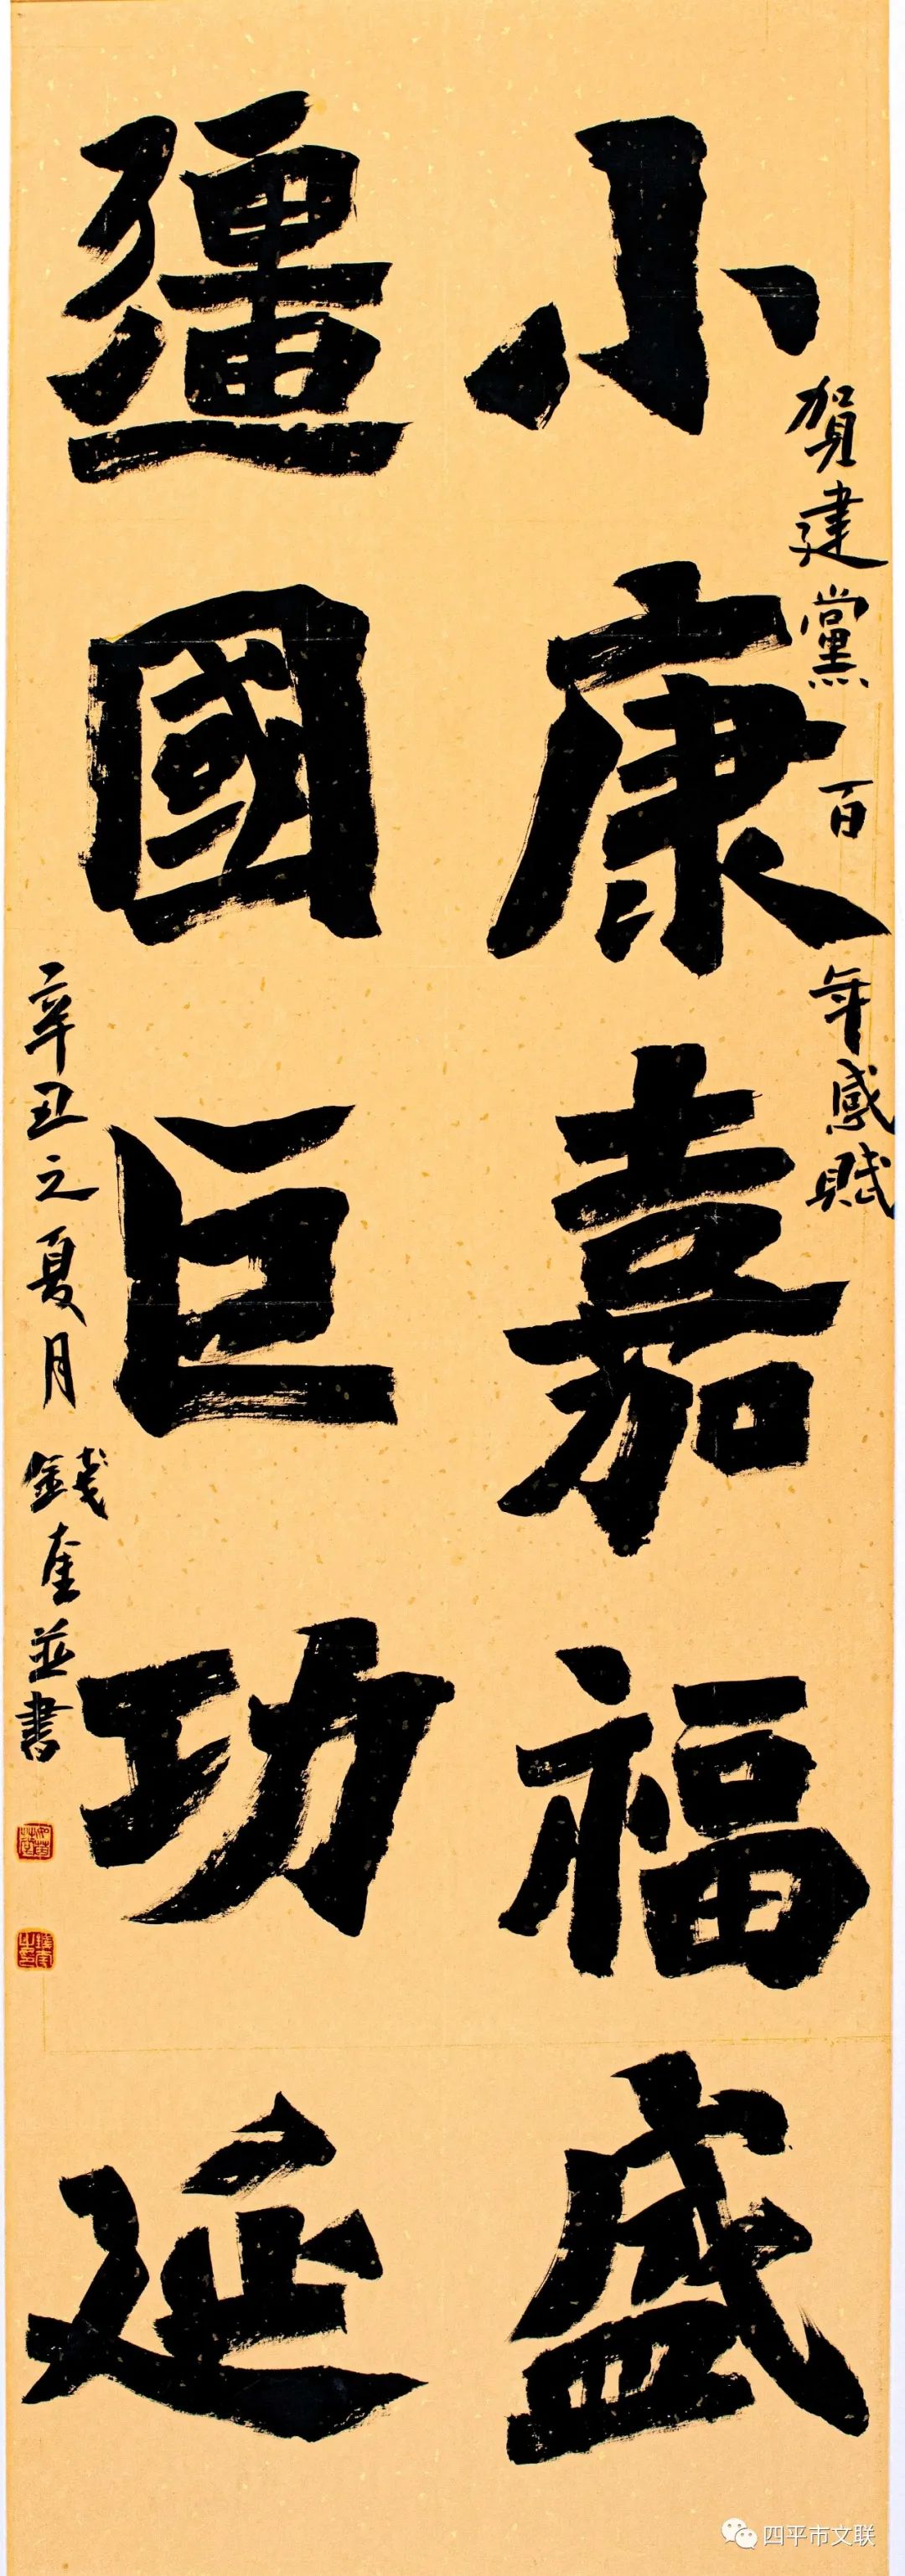 賀建黨百年感賦
小康嘉福盛
彊國巨功延
辛丑之夏月 錢奎並書
四平市文联